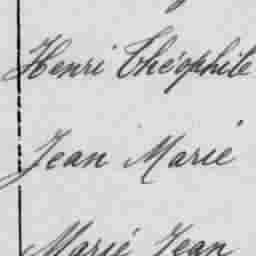 Henri Théophile
Jean Marie
Marie Jean